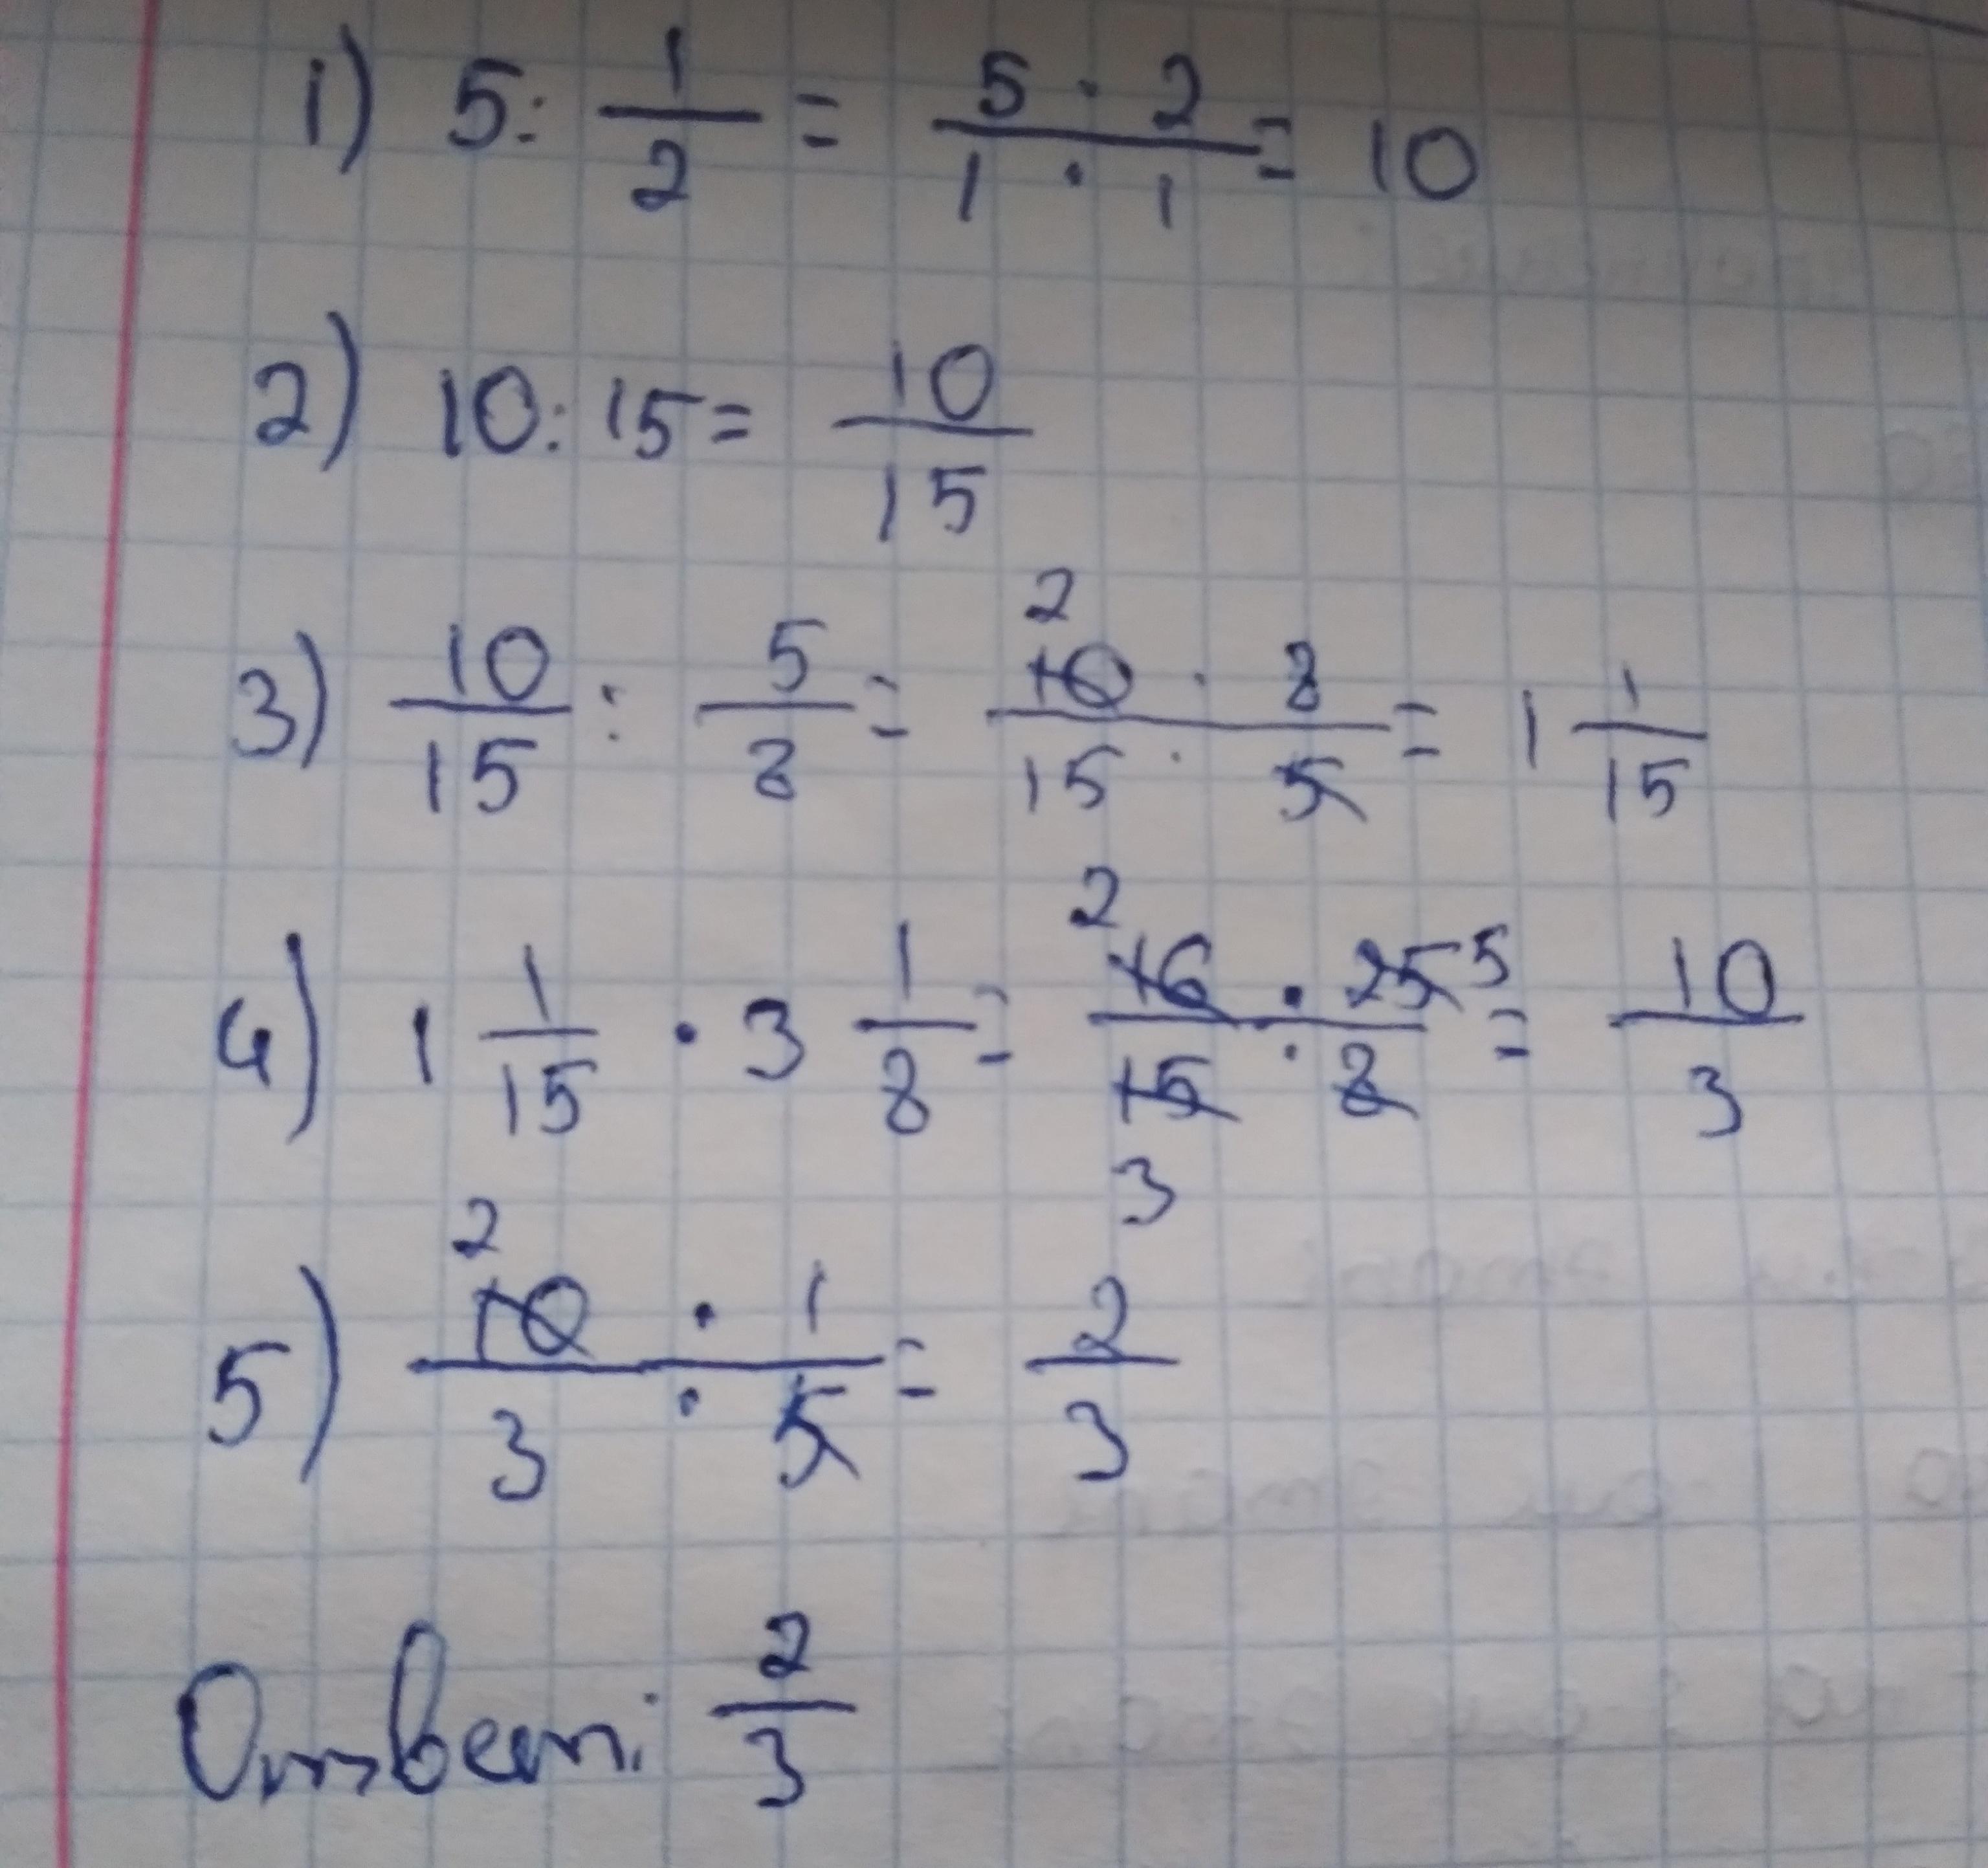 1) 5 : 1/2 = 5 · 2 / 1 · 1 = 10
2) 10 : 15 = 10/15
3) 10/15 : 5/8 = 2 10 · 8 / 15 · 5 = 1 1/15
4) 1 1/15 · 3 1/8 = 2 16 · 25 5 / 15 · 8 3 = 10/3
5) 2 10 · 1 / 3 · 5 = 2/3
Ответ: 2/3